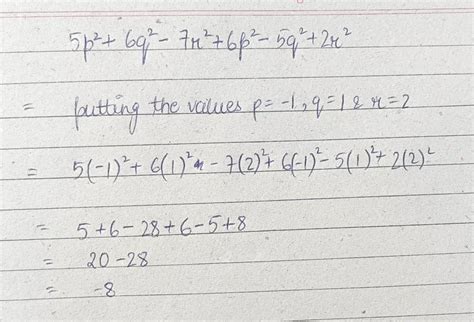 5p² + 6q² - 7r² + 6p² - 5q² + 2r²
= putting the values p = -1, q = 1 & r = 2
= 5(-1)² + 6(1)² - 7(2)² + 6(-1)² - 5(1)² + 2(2)²
= 5 + 6 - 28 + 6 - 5 + 8
= 20 - 28
= -8